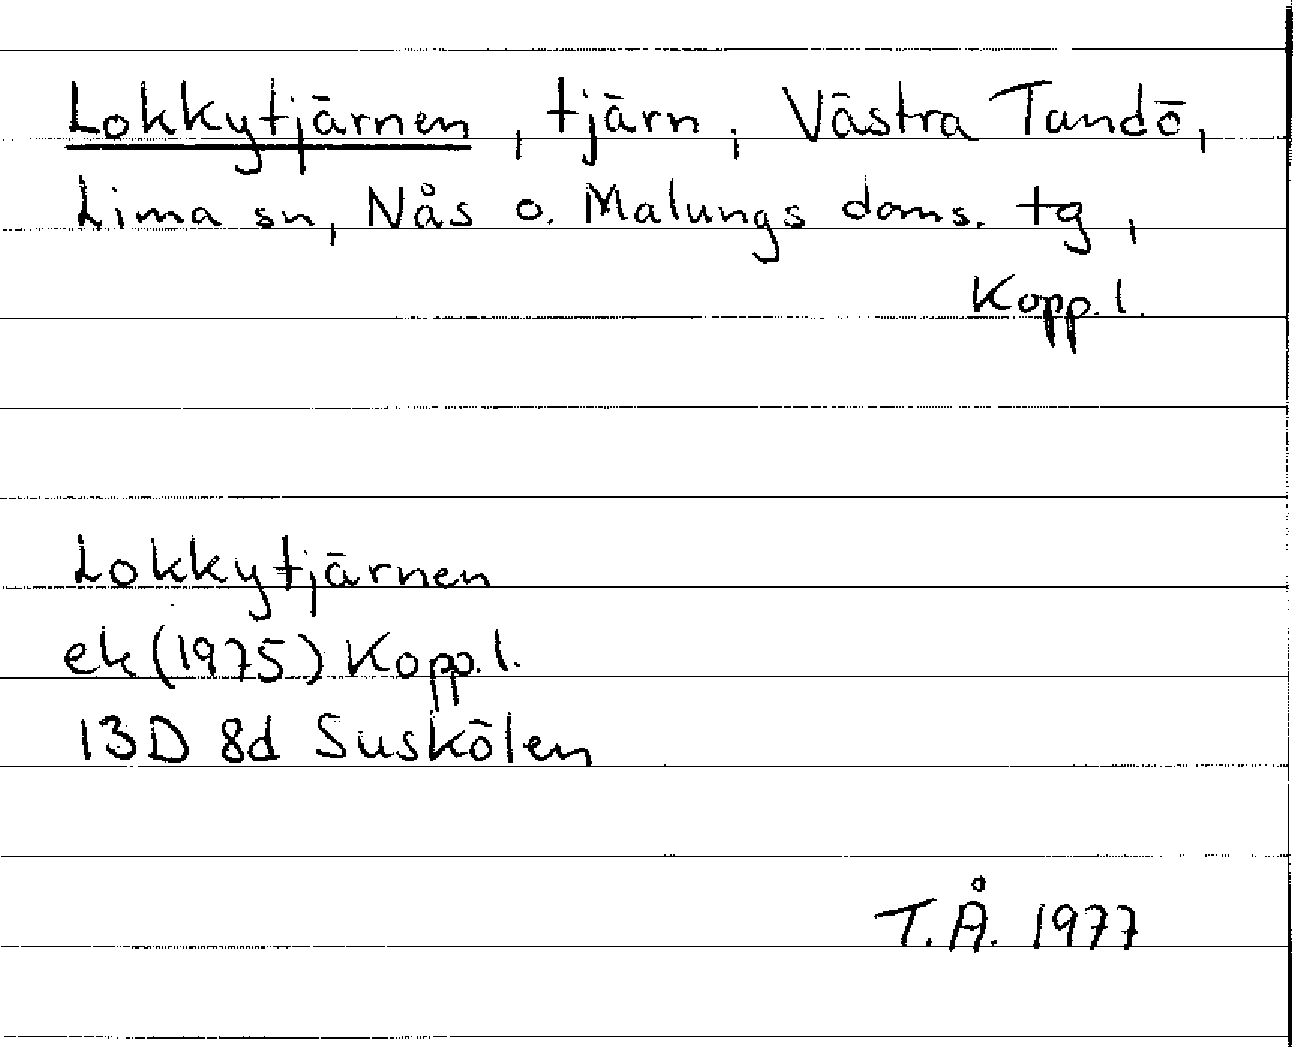 Lokkytjärnen, tjärn, Västra Tandö,
Lima sn, Nås o. Malungs doms. tg,
Kopp. l.
Lokkytjärnen
ek (1975) Kopp. l.
13D 8d Suskölen
T.Å. 1977